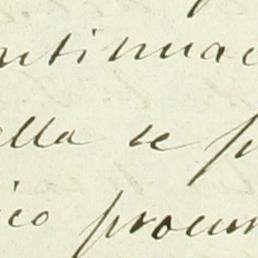 ntinuac
ella se p
ico procur